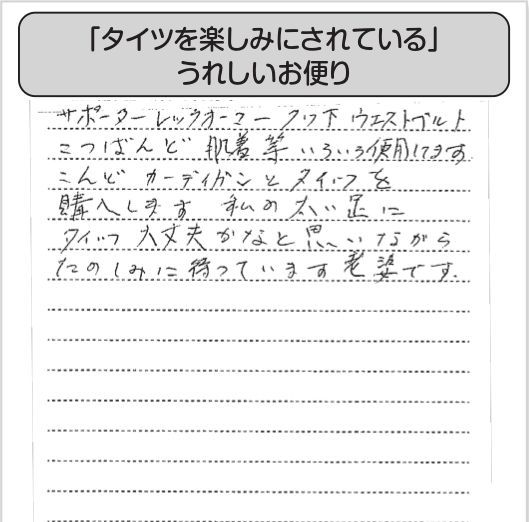 「タイツを楽しみにされている」
うれしいお便り
サポーター レッグウォーマー クツ下 ウエストベルト
こつばんど 肌着 等 いろいろ使用してます
こんど カーディガンと タイツを
購入します 私の太い足に
タイツ 大丈夫かなと思いながら
たのしみに待っています 老婆です.